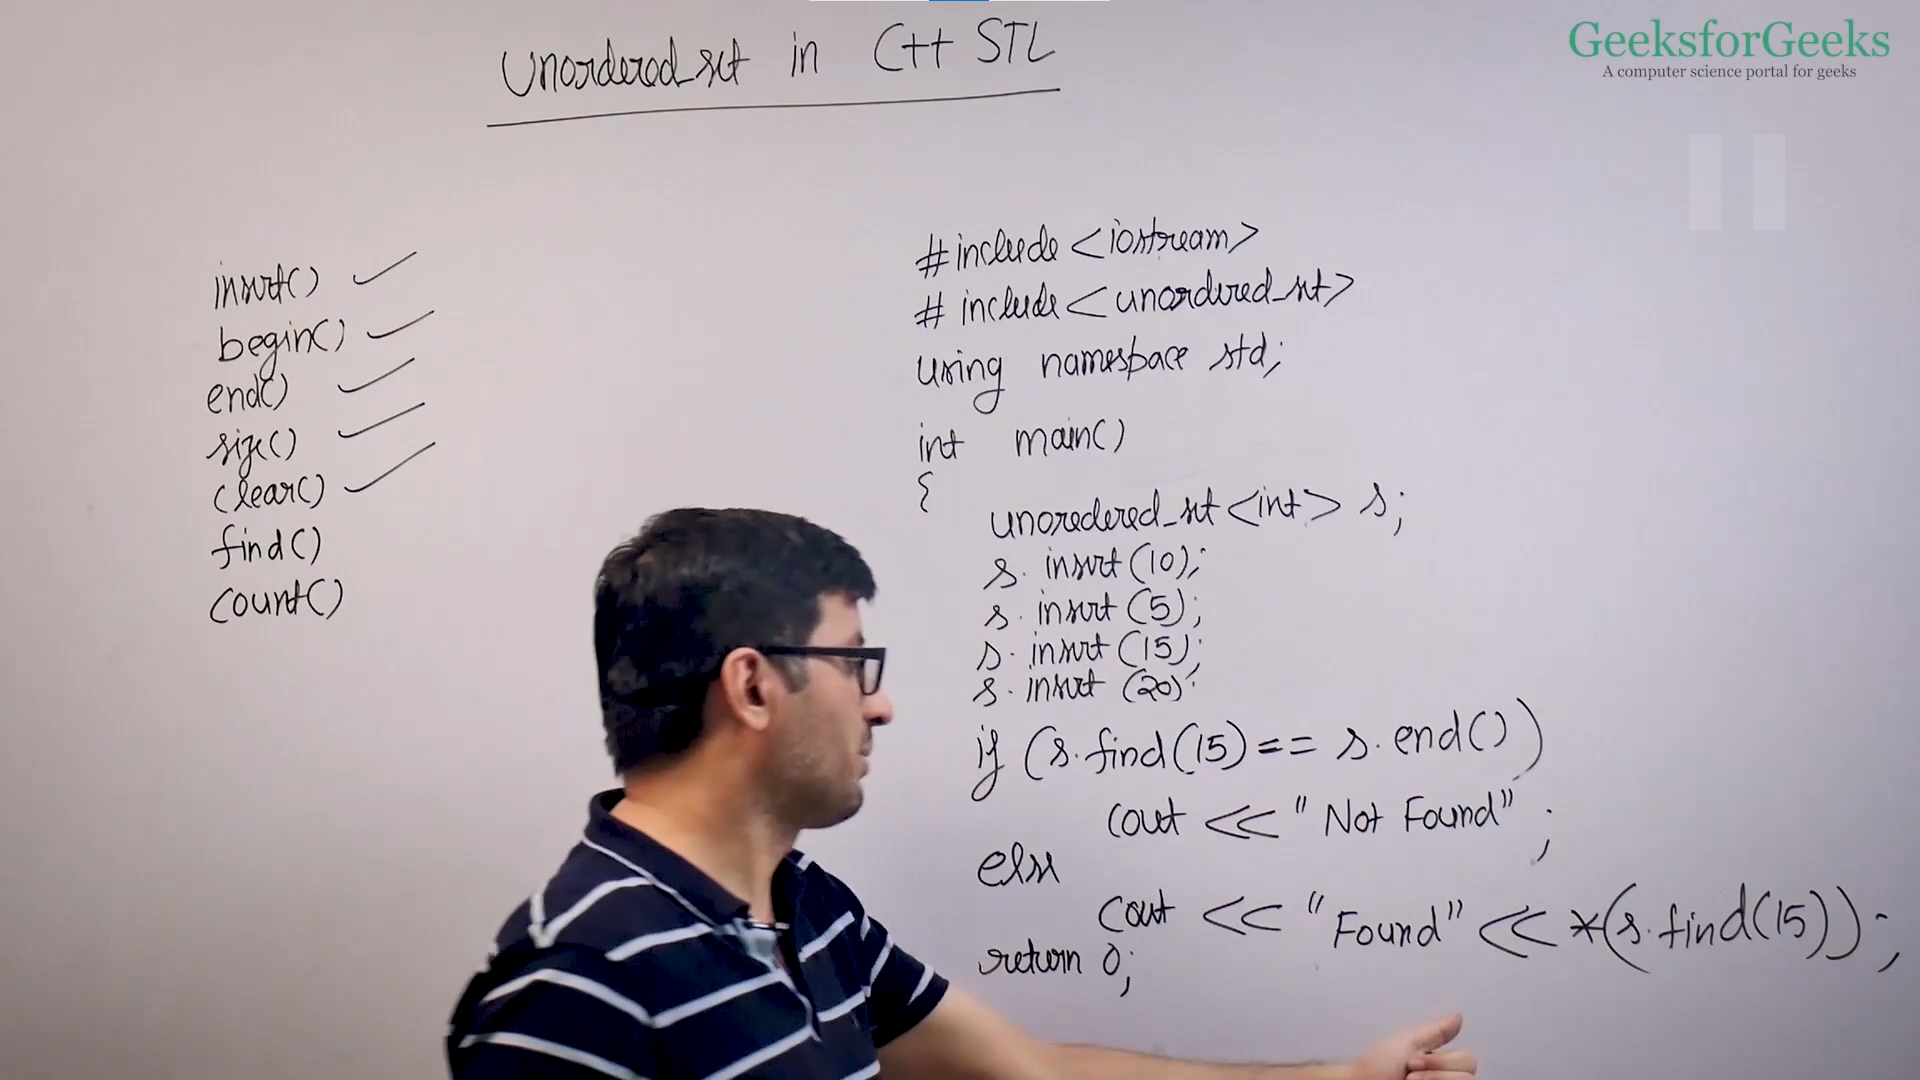 Unordered_set in C++ STL
GeeksforGeeks
A computer science portal for geeks
insert()
begin()
end()
size()
clear()
find()
count()
#include <iostream>
# include <unordered_set>
using namespace std;
int main()
{
unoredered_set <int> s;
s. insert (10);
s. insert (5);
s. insert (15);
s. insert (20);
if (s.find(15) == s.end())
cout << "Not Found" ;
else
cout << "Found" << *(s.find(15));
return 0;